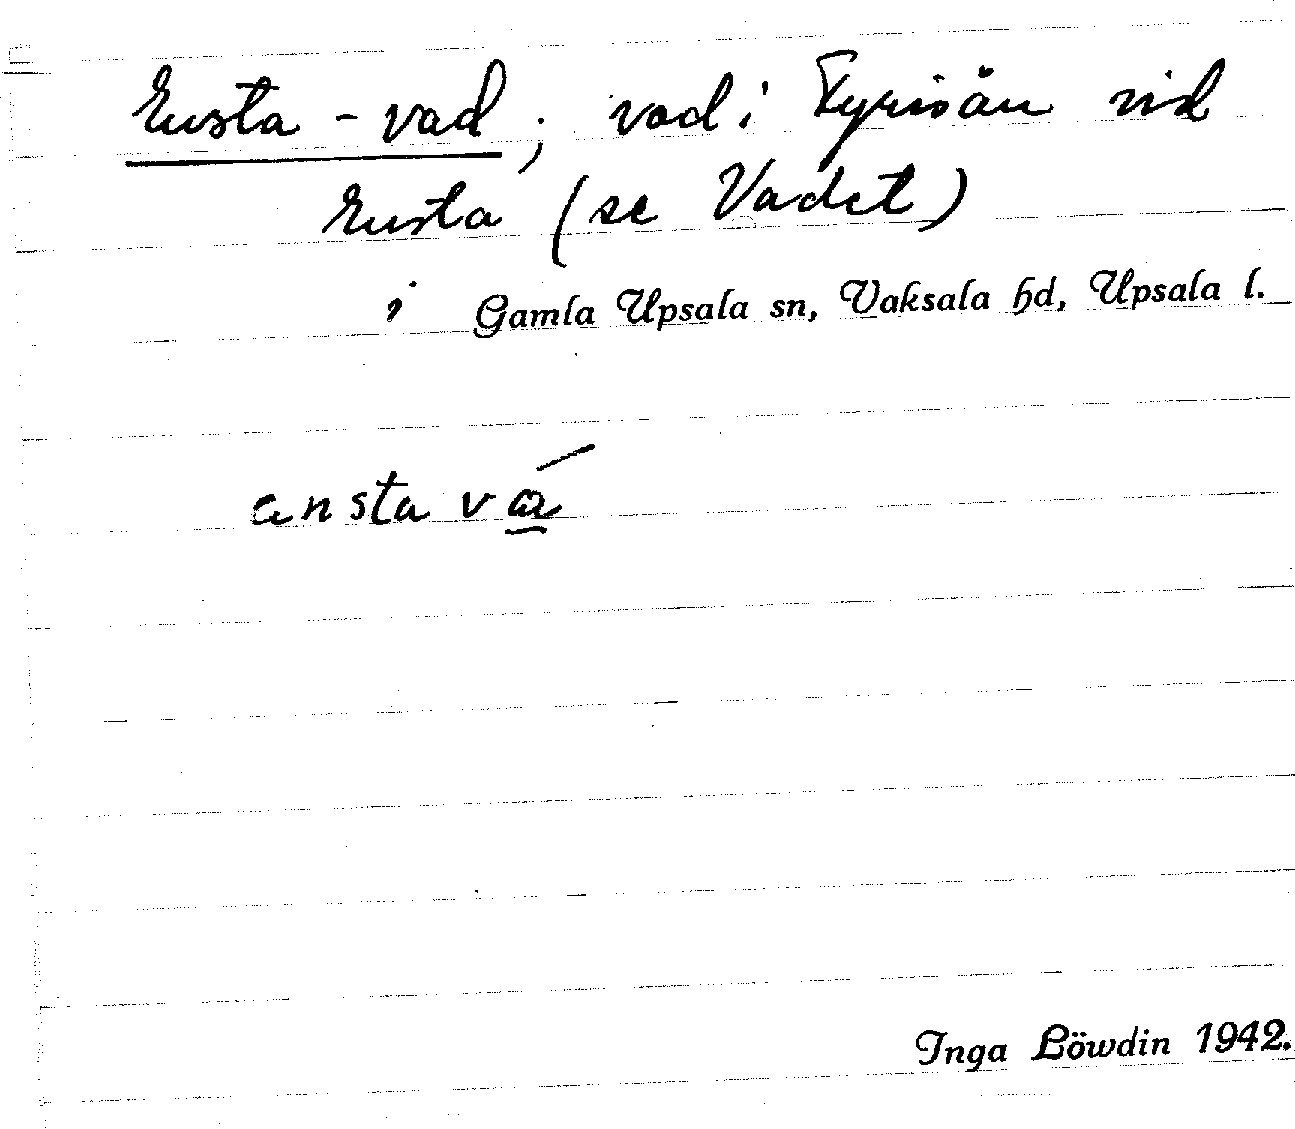 Ensta - vad ; vad i Fyrisån vid
Ensta (se Vadet)
i Gamla Upsala sn, Vaksala hd, Upsala l.
ansta vá̱
Inga Löwdin 1942.